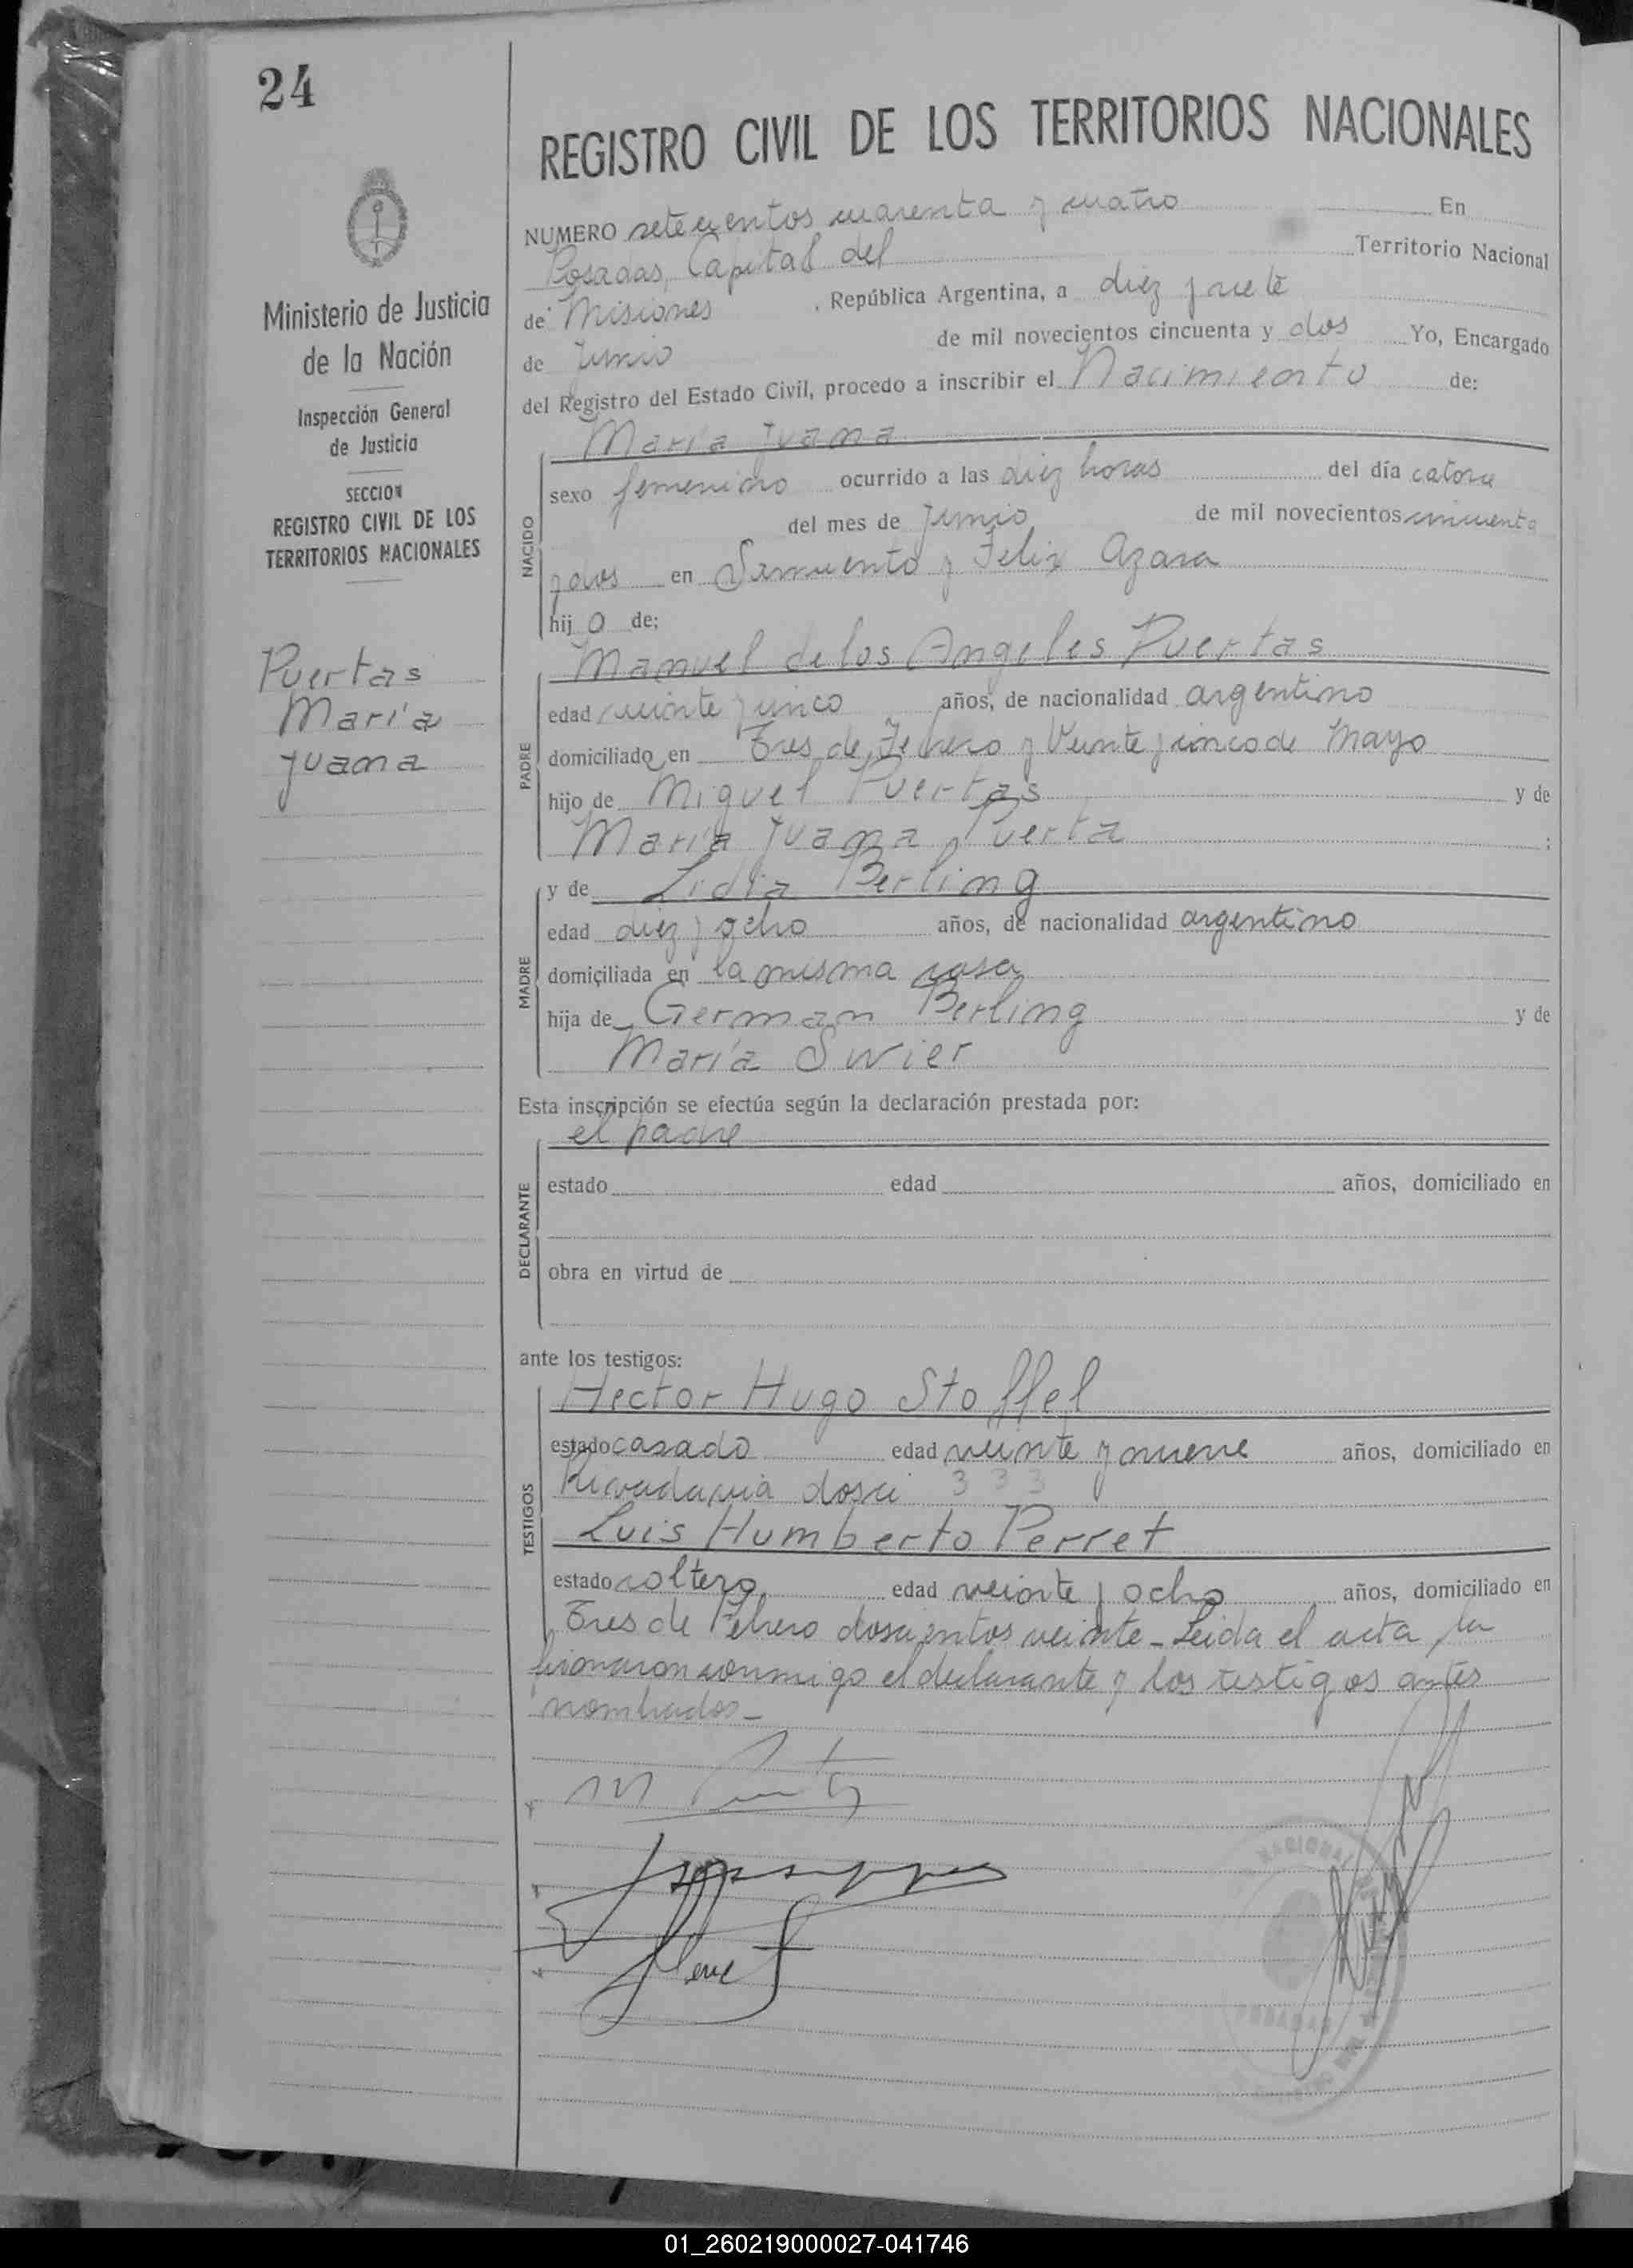 24
REGISTRO CIVIL DE LOS TERRITORIOS NACIONALES
Ministerio de Justicia
de la Nación
Inspección General
de Justicia
SECCION
REGISTRO CIVIL DE LOS
TERRITORIOS NACIONALES
Puertas
María
Juana
NUMERO setecientos cuarenta y cuatro En
Posadas, Capital del Territorio Nacional
de Misiones, República Argentina, a diez y siete
de Junio de mil novecientos cincuenta y dos Yo, Encargado
del Registro del Estado Civil, procedo a inscribir el Nacimiento de:
María Juana
NACIDO
sexo femenino ocurrido a las diez horas del día catorce
del mes de Junio de mil novecientos cincuenta
y dos en Sarmiento y Felix Azara
hijo de;
Manuel de los Angeles Puertas
PADRE
edad veinte y cinco años, de nacionalidad argentino
domiciliado en Tres de Febrero y Veinte y cinco de Mayo
hijo de Miguel Puertas y de
María Juana Puerta;
MADRE
y de Lidia Berling
edad diez y ocho años, de nacionalidad argentino
domiciliada en la misma casa
hija de German Berling y de
María Swier
Esta inscripción se efectúa según la declaración prestada por:
el padre
DECLARANTE
estado edad años, domiciliado en
obra en virtud de
ante los testigos:
TESTIGOS
Hector Hugo Stoffel
estado casado edad veinte y nueve años, domiciliado en
Rivadavia 333
Luis Humberto Perret
estado soltero edad veinte y ocho años, domiciliado en
Tres de Febrero doscientos veinte - Leida el acta la
firmaron conmigo el declarante y los testigos antes
nombrados -
POSADAS
01_260219000027-041746